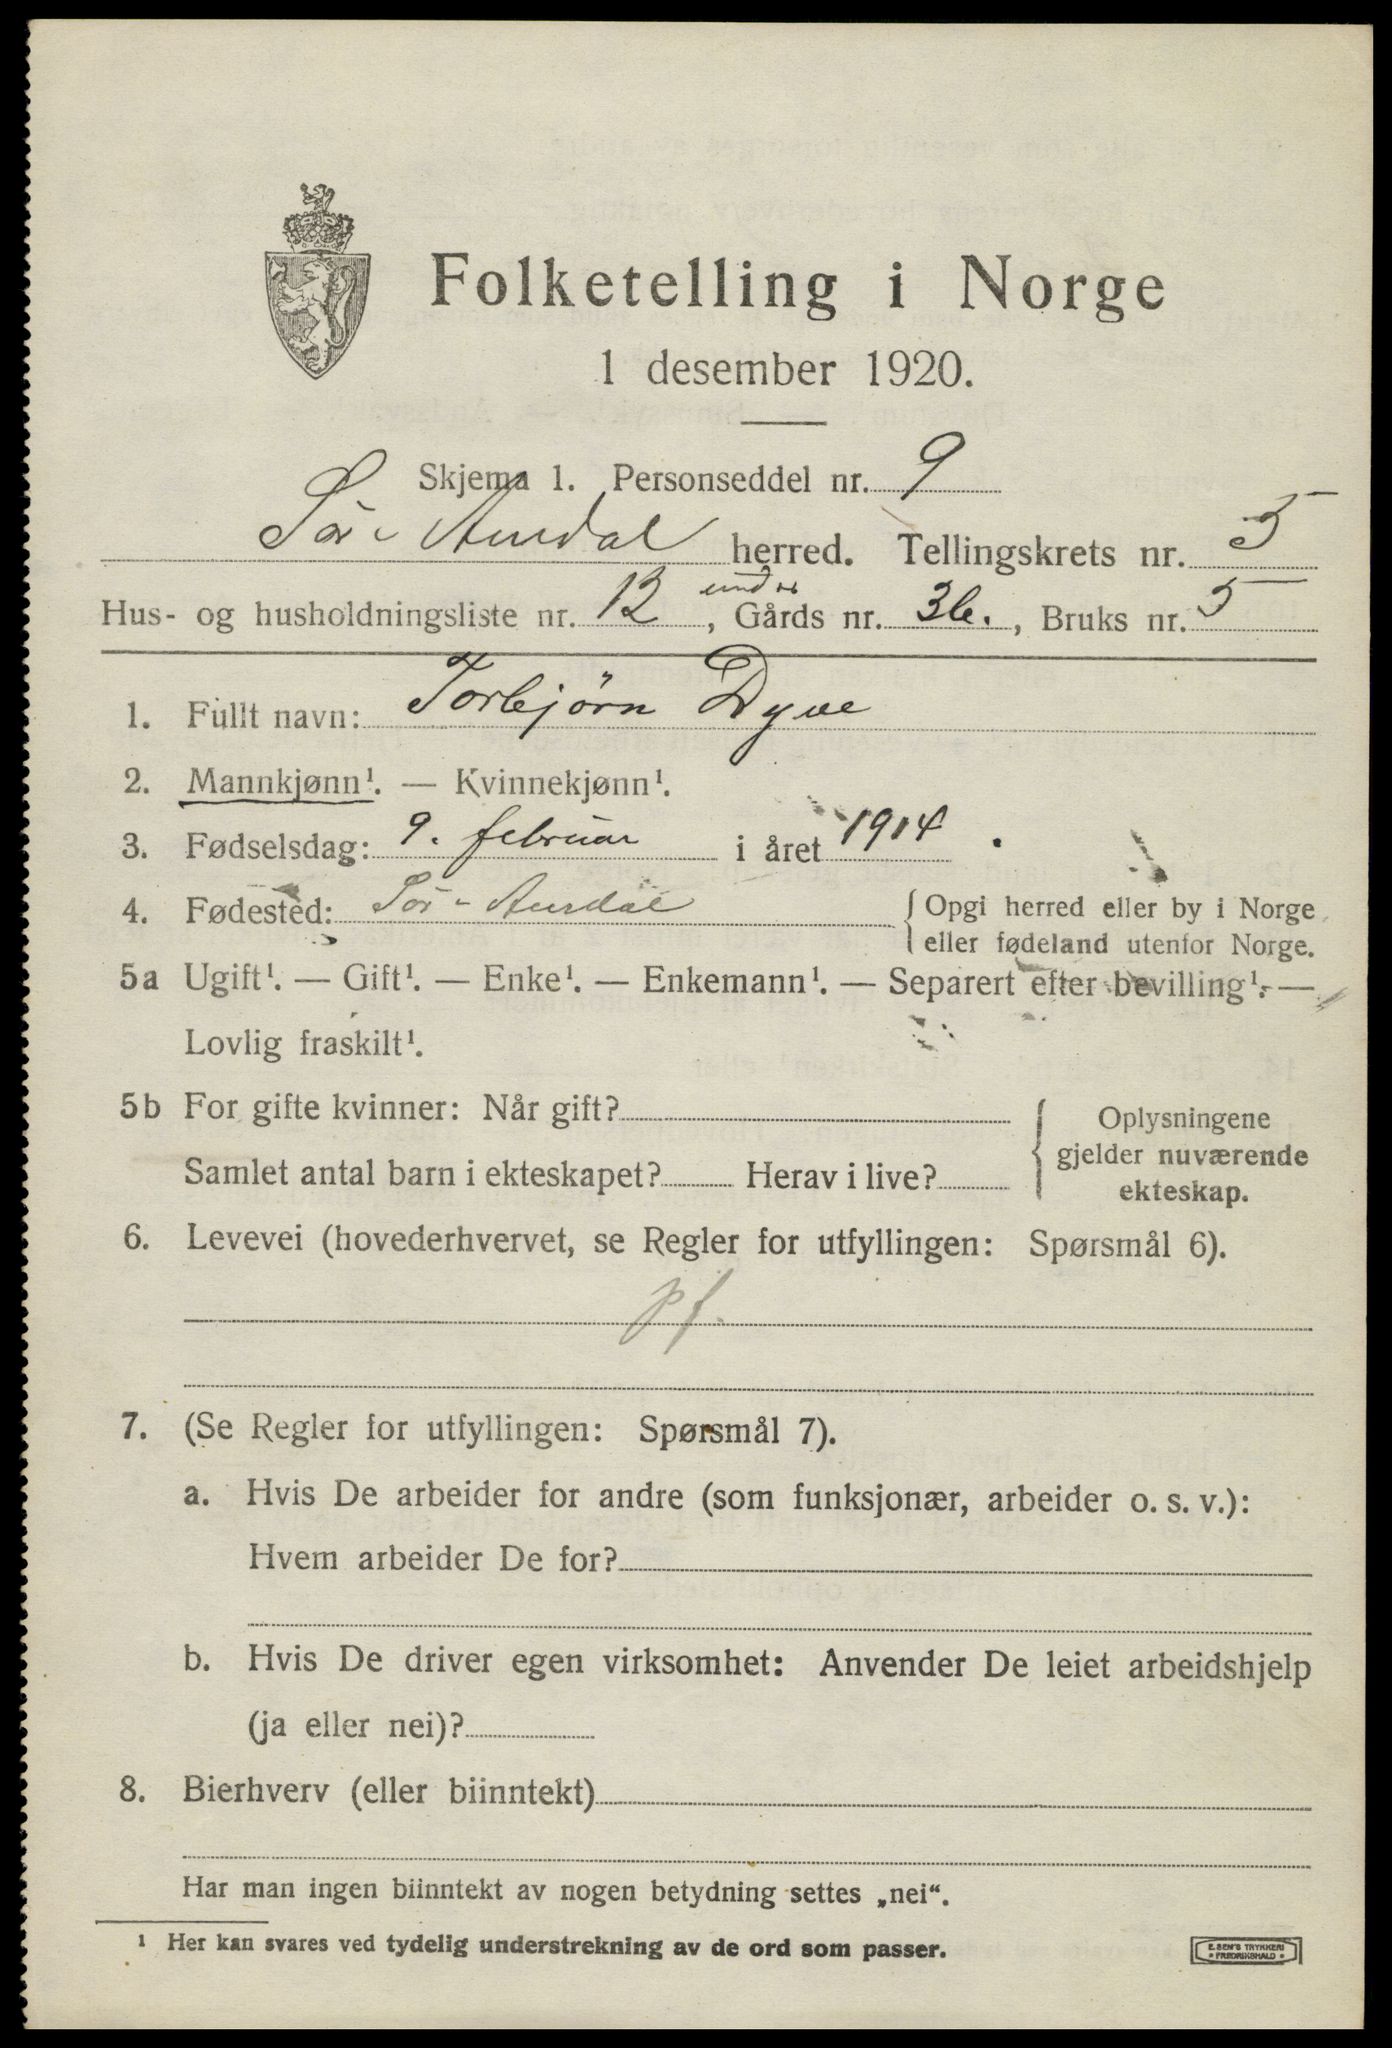 Folketelling i Norge
1 desember 1920.
Skjema 1. Personseddel nr. 9
Sør-Aurdal herred. Tellingskrets nr. 5
Hus- og husholdningsliste nr. 12, under Gårds nr. 36., Bruks nr. 5
1. Fullt navn: Torbjørn Dyve
2. Mannkjønn¹. — Kvinnekjønn¹.
3. Fødselsdag: 9. februar i året 1914.
4. Fødested: Sør-Aurdal { Opgi herred eller by i Norge
eller fødeland utenfor Norge.
5a Ugift¹. — Gift¹. — Enke¹. — Enkemann¹. — Separert efter bevilling¹. —
Lovlig fraskilt¹.
5b For gifte kvinner: Når gift?
Samlet antal barn i ekteskapet? Herav i live?
{ Oplysningene
gjelder nuværende
ekteskap.
6. Levevei (hovederhvervet, se Regler for utfyllingen: Spørsmål 6).
pf.
7. (Se Regler for utfyllingen: Spørsmål 7).
a. Hvis De arbeider for andre (som funksjonær, arbeider o. s. v.):
Hvem arbeider De for?
b. Hvis De driver egen virksomhet: Anvender De leiet arbeidshjelp
(ja eller nei)?
8. Bierhverv (eller biinntekt)
Har man ingen biinntekt av nogen betydning settes „nei“.
¹ Her kan svares ved tydelig understrekning av de ord som passer.
E. SEM'S TRYKKERI
• FREDRIKSHALD •